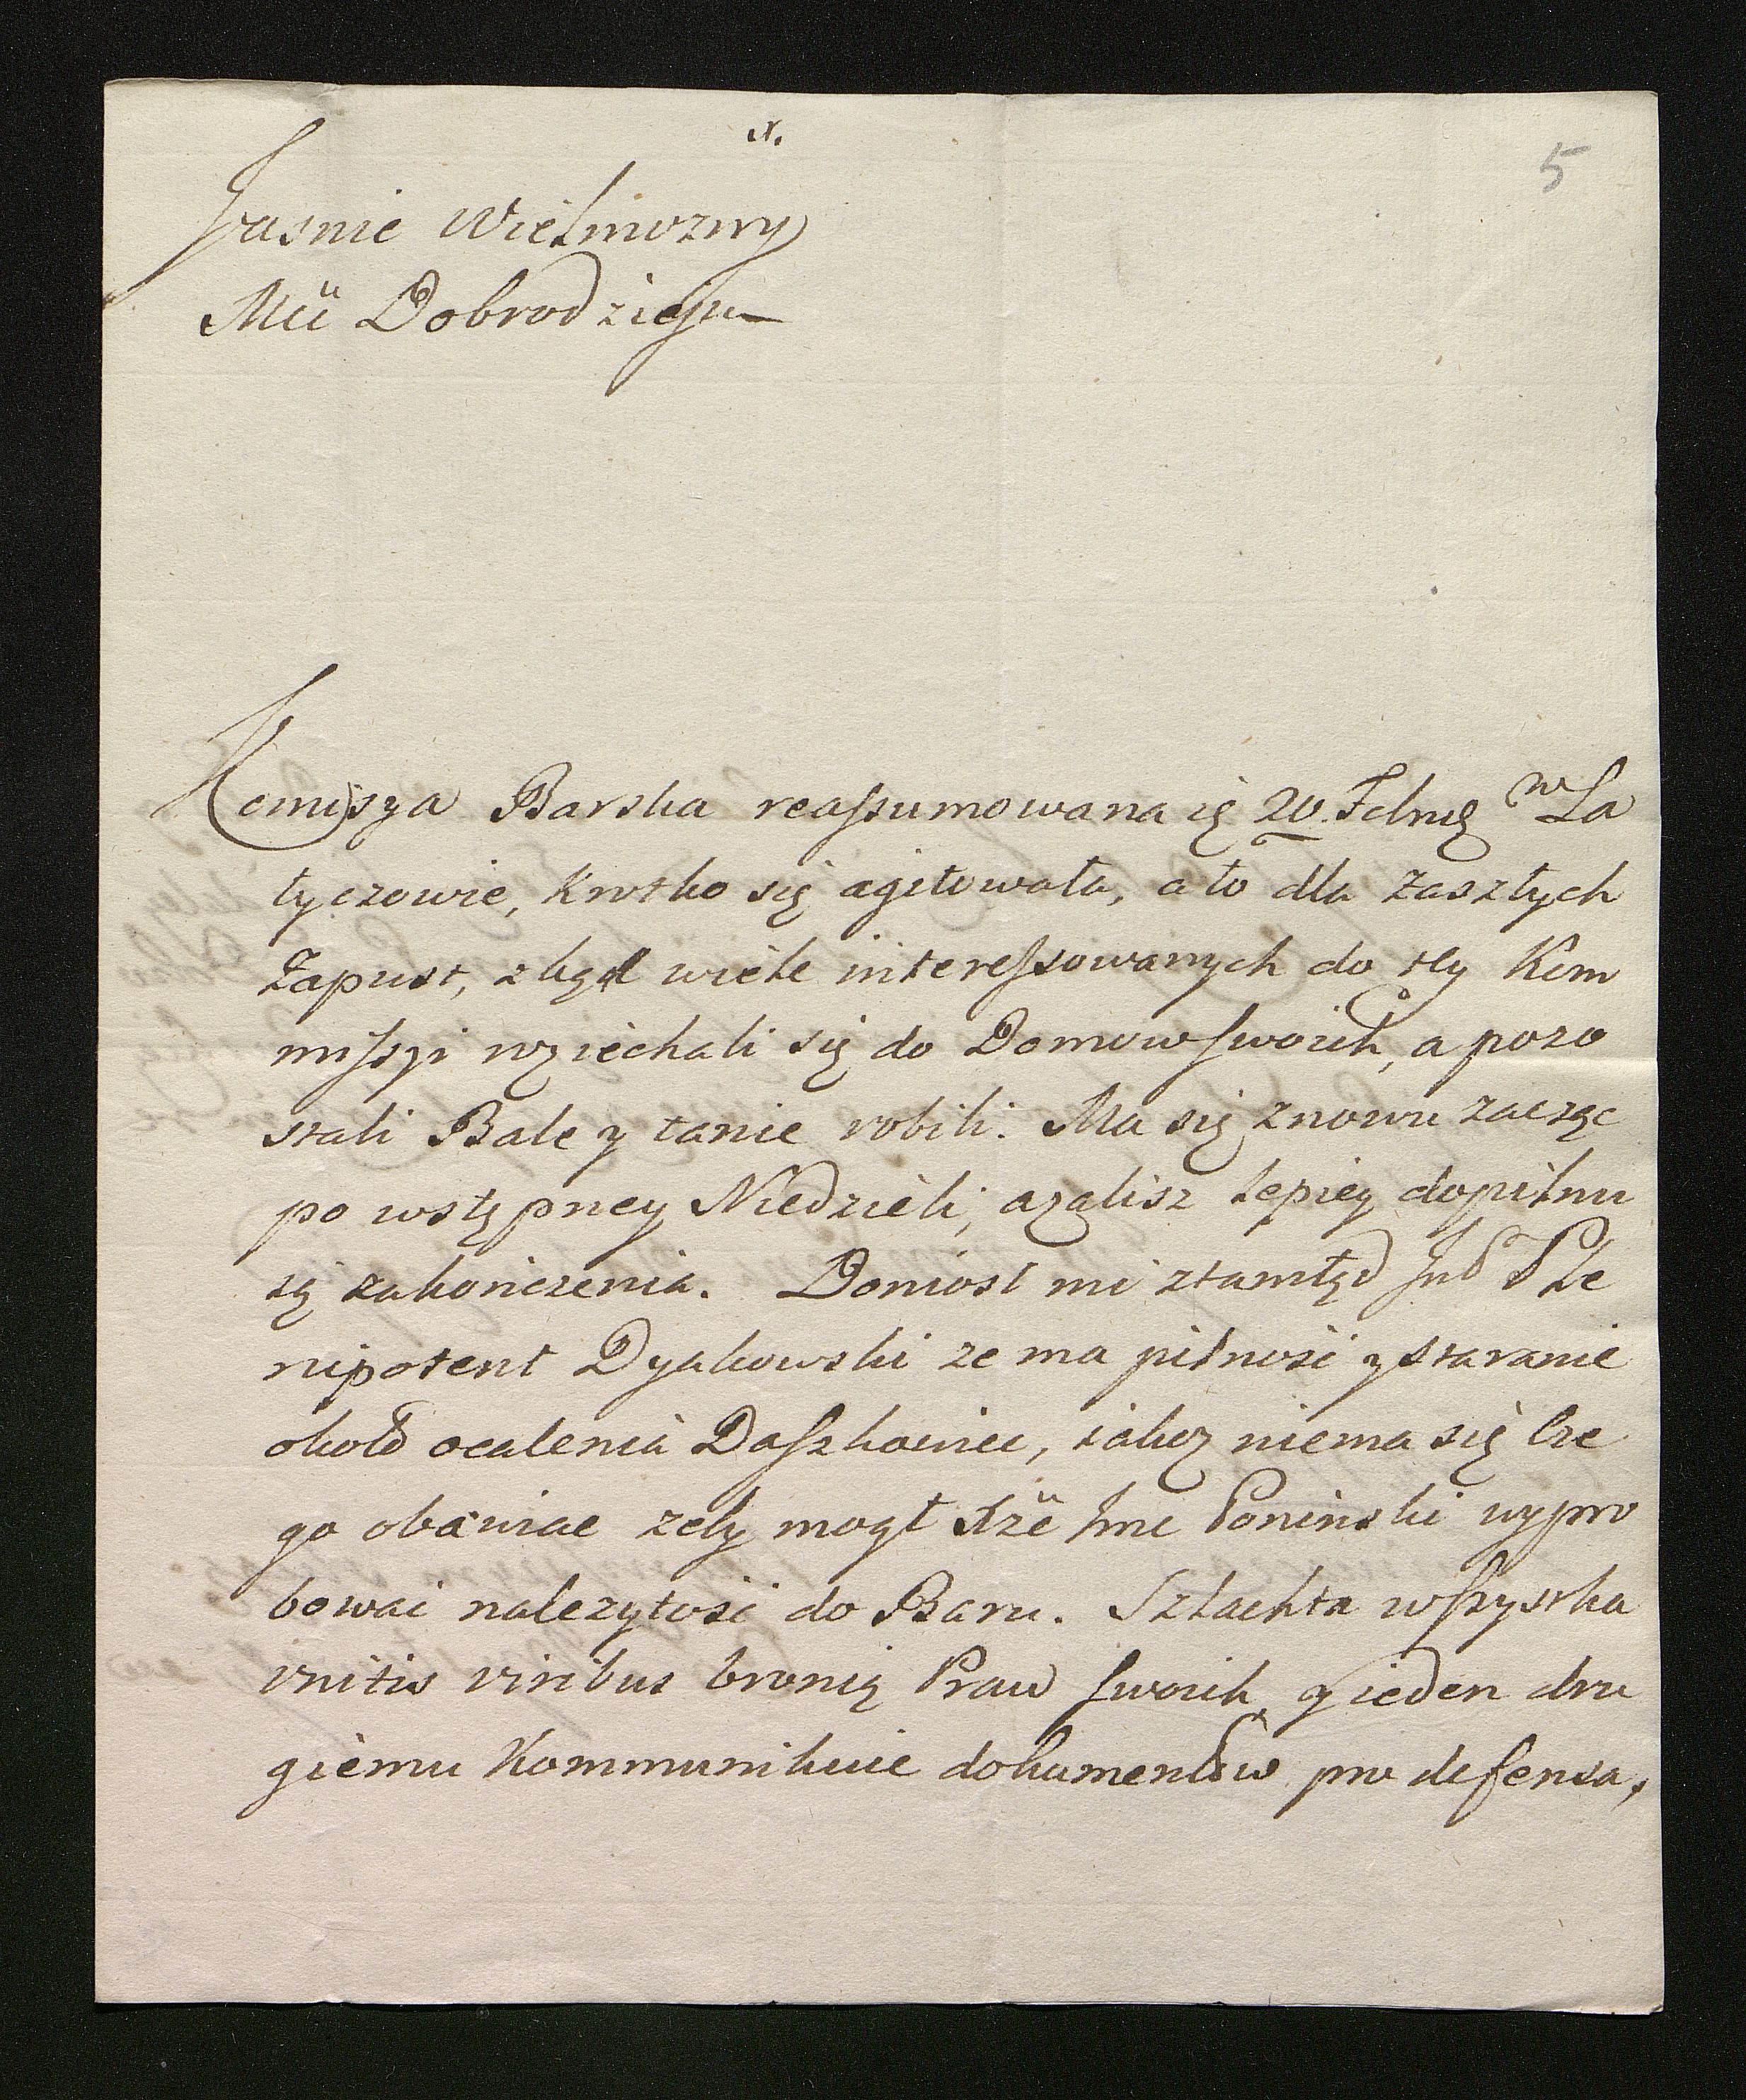 5
Jasnie Wielmozny
Mci Dobrodzieju
Komiszya Barska reassumowana 20. w La
tyczowie, krotko się agitowała, a to dla zaszłych
Zapust, zkąd wiele interessowanych do tey Kom
missyi roziechali się do Domow swoich, a pozo
stali Bale y tance robili. Ma się znowu zacząc
po wstępney Niedzieli, azalisz lepiey dopilnu
ią zakończenia. Doniosł mi ztamtąd Ple
nipotent Dyakowski ze ma pilność y staranie
około ocalenia Daszkowiec, iakoz niema się Cze
go obawiac zeby mogł Xże Jmc Poninski wypro
bować nalezytość do Baru. Szlachta wszystka
unitis viribus bronią Praw swoich, y ieden dru
giemu Kommunikuie dokumentow pro defensa,